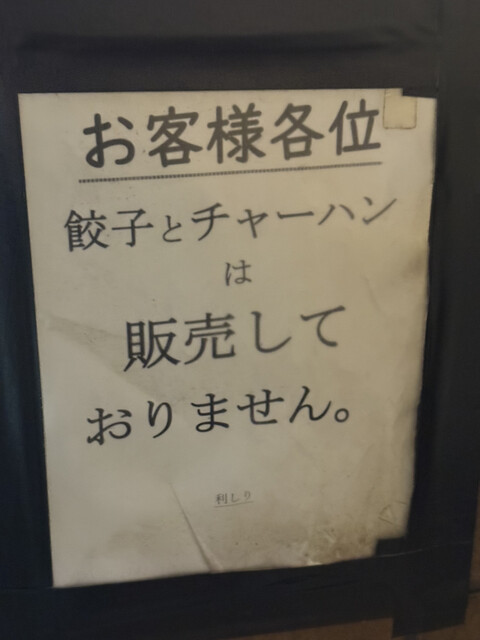 お客様各位
餃子とチャーハン
は
販売して
おりません。
利しり